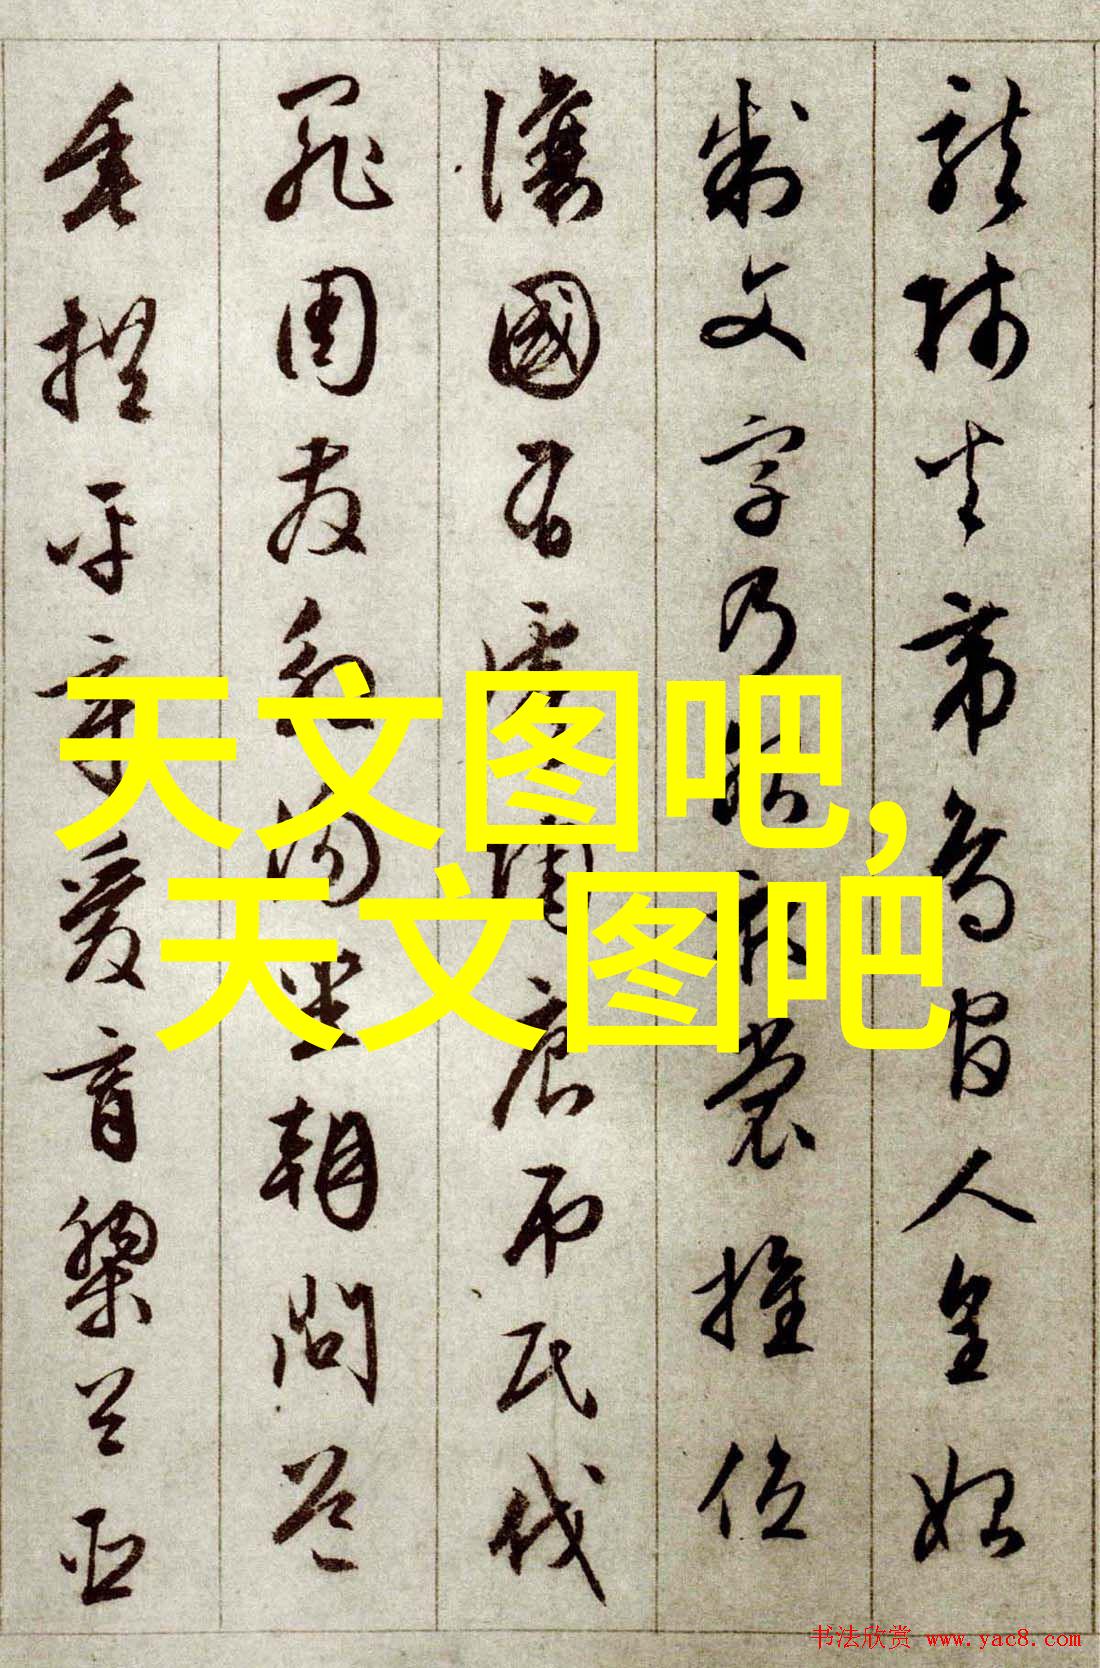 龍師火帝鳥官人皇始
制文字乃服衣裳推位
讓國有虞陶唐弔民伐
罪周發殷湯坐朝問道
垂拱平章愛育黎首臣
天文图吧,
天文图吧
书法欣赏 www.yac8.com